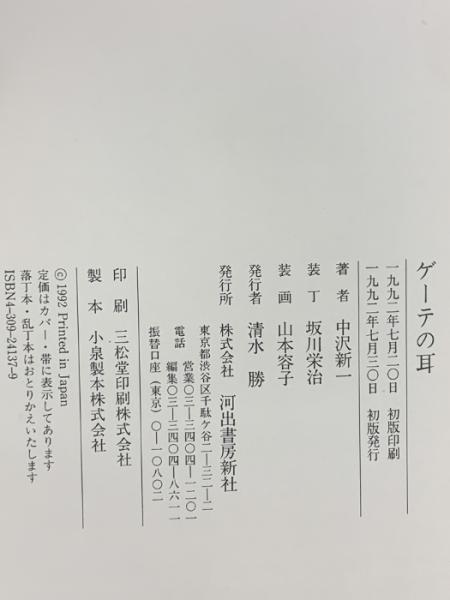 ゲーテの耳
一九九二年七月二〇日　初版印刷
一九九二年七月三〇日　初版発行
著者　中沢新一
装丁　坂川栄治
装画　山本容子
発行者　清水　勝
発行所　株式会社　河出書房新社
東京都渋谷区千駄ケ谷二—三二—二
電話　営業〇三—三四〇四—一二〇一
編集〇三—三四〇四—八六一一
振替口座（東京）〇—一〇八〇二
印刷　三松堂印刷株式会社
製本　小泉製本株式会社
©1992 Printed in Japan
定価はカバー・帯に表示してあります
落丁本・乱丁本はおとりかえいたします
ISBN4-309-24137-9